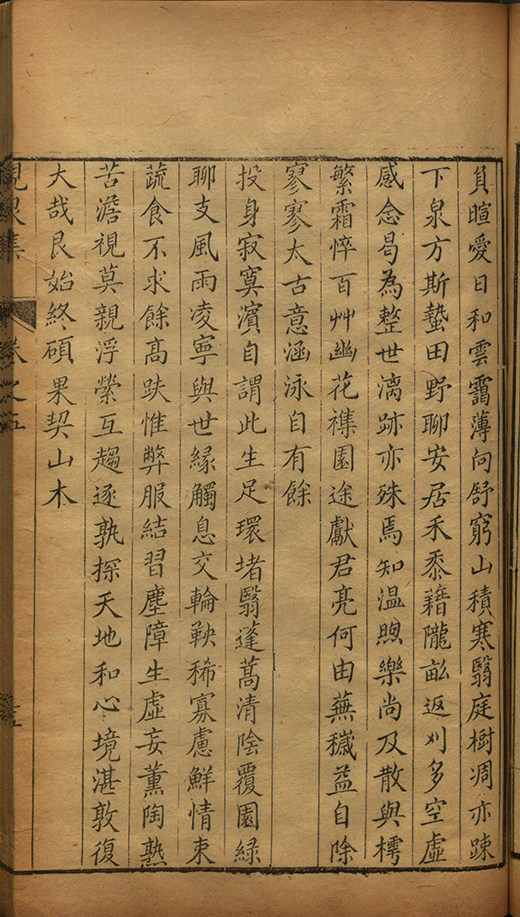 負暄愛日和雲靄薄向舒窮山積寒翳庭樹凋亦踈
下泉方斯蟄田野聊安居禾黍藉隴畝返刈多空虛
感念曷為整世漓跡亦殊焉知溫煦樂尚及散與樗
繁霜悴百艸幽花襍園途獻君亮何由蕪穢益自除
寥寥太古意涵泳自有餘
投身寂寞濱自謂此生足環堵翳蓬蒿清陰覆園綠
聊支風雨凌寧與世緣觸息交輪鞅稀寡慮鮮情束
蔬食不求餘高趺惟弊服結習塵障生虛妄薰陶熟
苦澹視莫親浮縈互趨逐孰探天地和心境湛敦復
大哉艮始終碩果契山木
集 卷之五